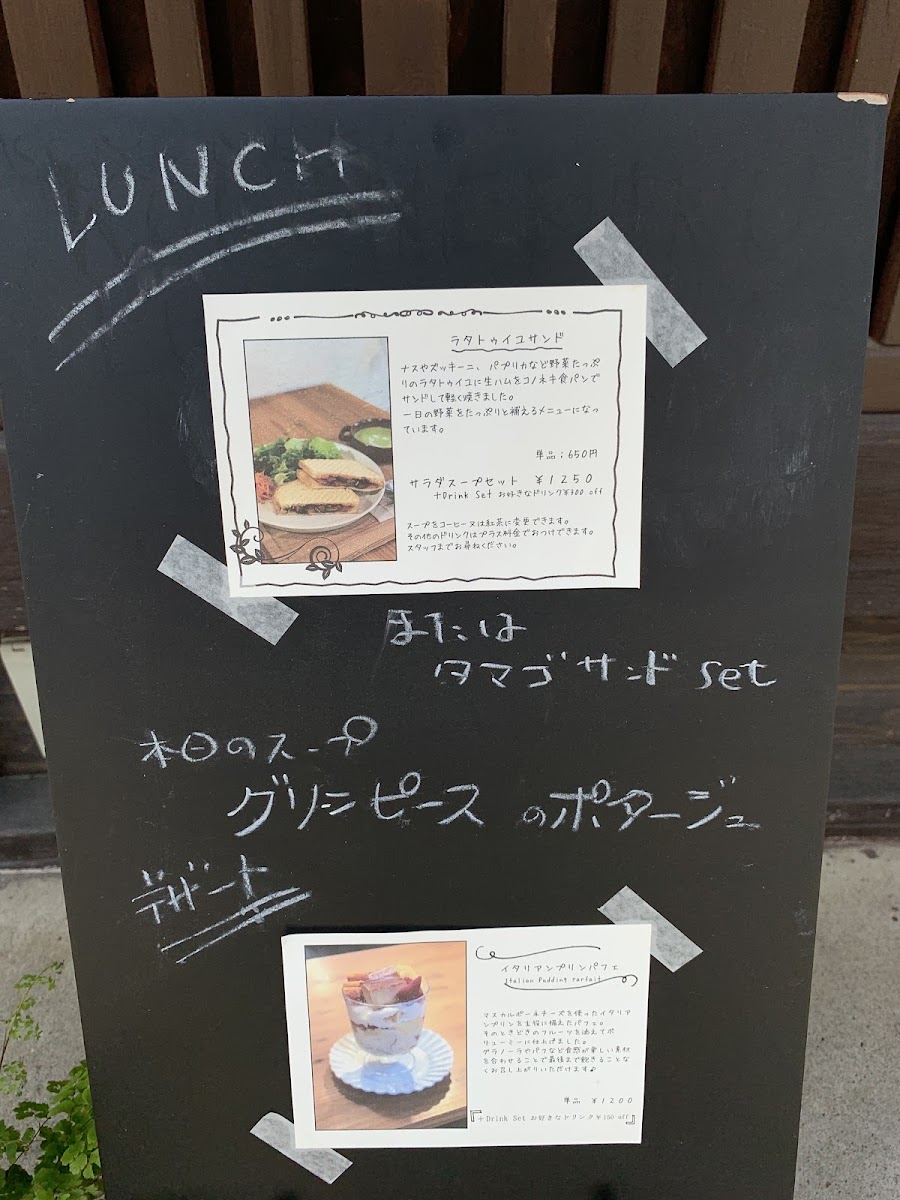 LUNCH
ラタトゥイユサンド
ナスやズッキーニ、パプリカなど野菜たっぷ
りのラタトゥイユに生ハムをコノネキ食パンで
サンドして軽く焼きました。
一日の野菜をたっぷりと補えるメニューになっ
ています。
単品：650円
サラダスープセット ￥1250
+Drink Set お好きなドリンク¥300 off
スープをコーヒーヌは紅茶に変更できます。
その他のドリンクはプラス料金でおつけできます。
スタッフまでお尋ねください。
または
タマゴサンド set
本日のスープ
グリンピース のポタージュ
デザート
イタリアンプリンパフェ
Italian Pudding Parfait
マスカルポーネチーズを使ったイタリア
ンプリンを主役に構えたパフェ。
そのときどきのフルーツを添えてボ
リューミーに仕上げました。
グラノーラやパフなど食感が楽しい素材
を合わせることで最後まで飽きることな
くお召し上がりいただけます♪
単品 ￥1200
『+Drink Set お好きなドリンク¥150 off』